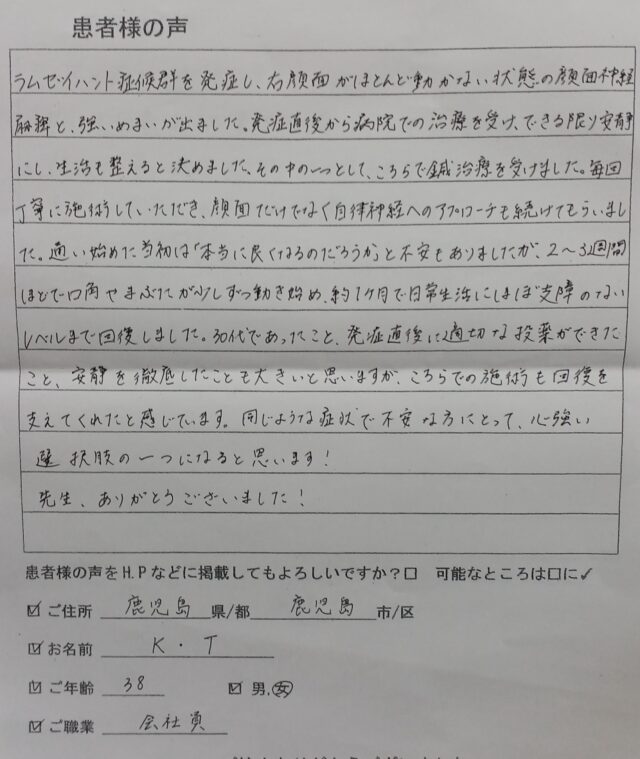 患者様の声
ラムゼイハント症候群を発症し、右顔面がほとんど動かない状態の顔面神経
麻痺と、強いめまいが出ました。発症直後から病院での治療を受け、できる限り安静
にし、生活も整えると決めました。その中の一つとして、こちらで鍼治療を受けました。毎回
丁寧に施術していただき、顔面だけでなく自律神経へのアプローチも続けてもらいまし
た。通い始めた当初は「本当に良くなるのだろうか」と不安もありましたが、2〜3週間
ほどで口角やまぶたが少しずつ動き始め、約1ケ月で日常生活にほぼ支障のない
レベルまで回復しました。30代であったこと、発症直後に適切な投薬ができた
こと、安静を徹底したことも大きいと思いますが、こちらでの施術も回復を
支えてくれたと感じています。同じような症状で不安な方にとって、心強い
選択肢の一つになると思います!
先生、ありがとうございました!
患者様の声をH.Pなどに掲載してもよろしいですか?☐ 可能なところは☐に✓
☑ ご住所 鹿児島 県/都 鹿児島 市/区
☑ お名前 K・T
☑ ご年齢 38 ☑ 男.女
☑ ご職業 会社員